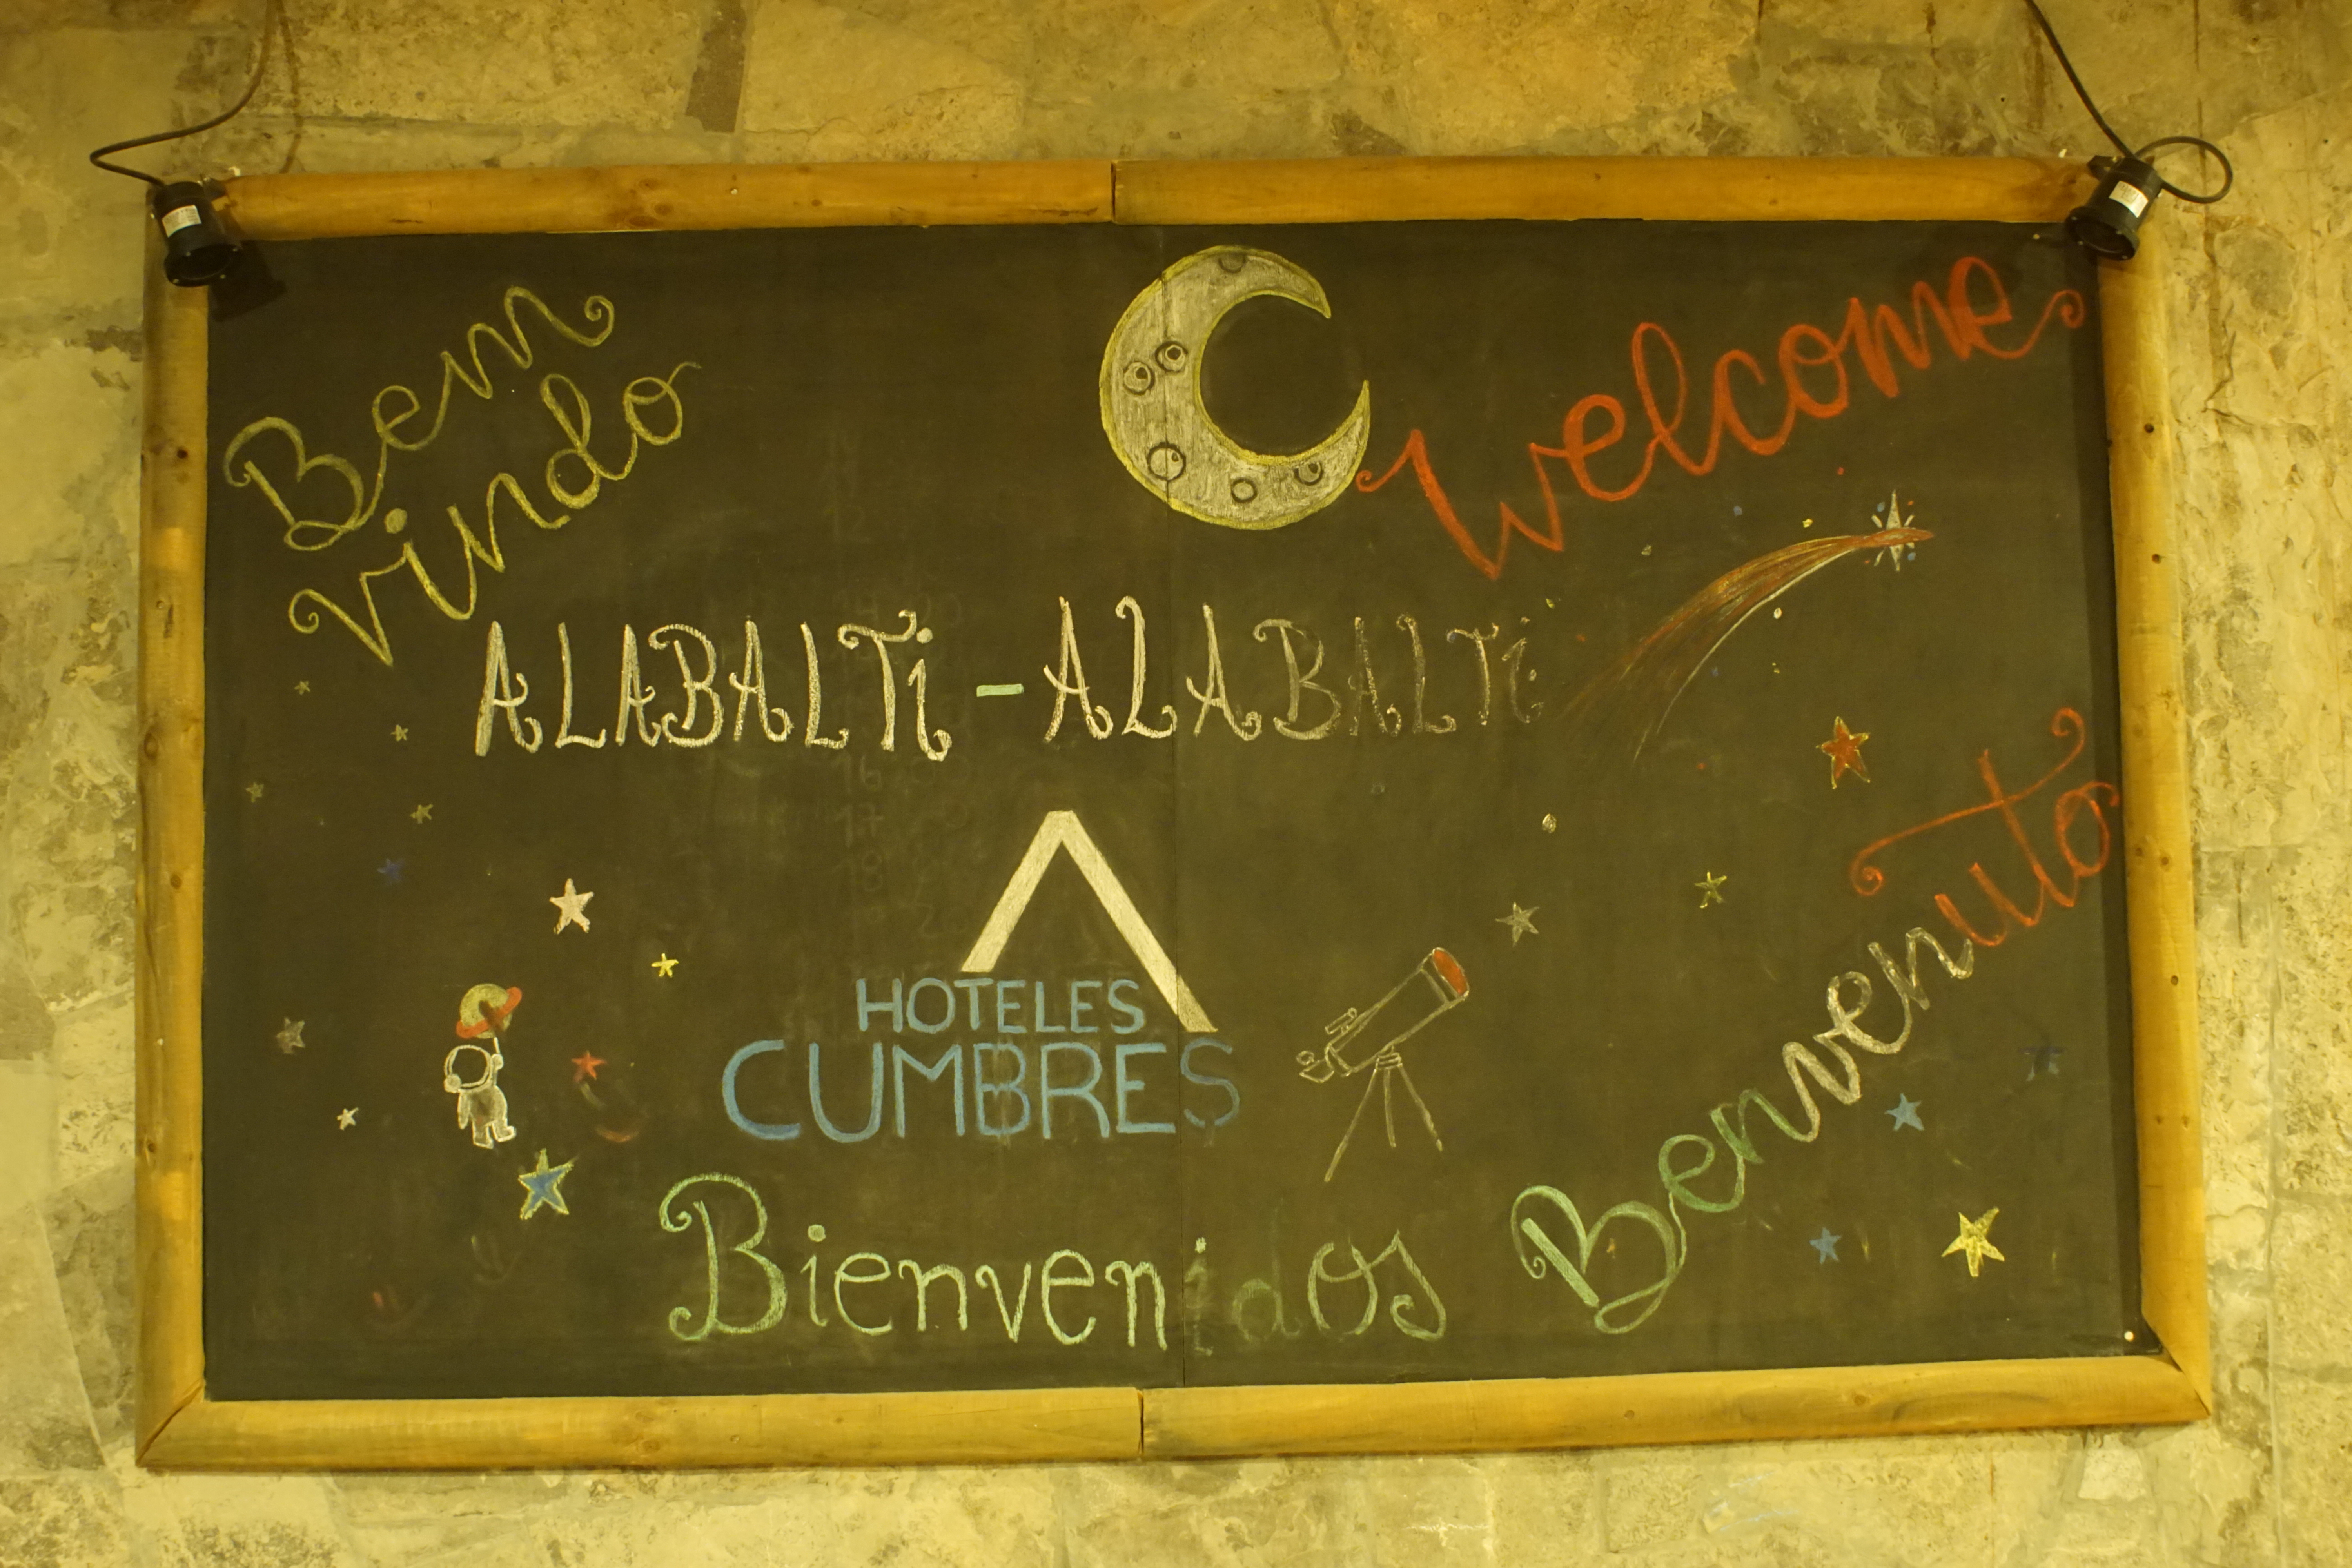 Bem
vindo
Welcome
ALABALTi - ALABALTi
HOTELES
CUMBRES
Benvenuto
Bienvenidos